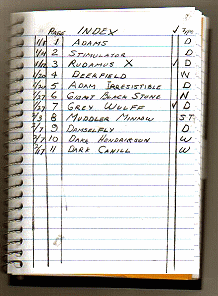 PAGE INDEX ✓ Type
1/8 1 ADAMS D
1/9 2 STIMULATOR D
1/18 3 RUDAMUS X ✓ D
1/20 4 DEERFIELD N
1/20 5 ADAM IRRESISTIBLE D
1/27 6 GIANT BLACK STONE N
1/27 7 GREY WULFF ✓ D
2/3 8 MUDDLER MINNOW ST
2/7 9 DAMSELFLY D
2/7 10 DARK HENDRICKSON W
2/17 11 DARK CAHILL W